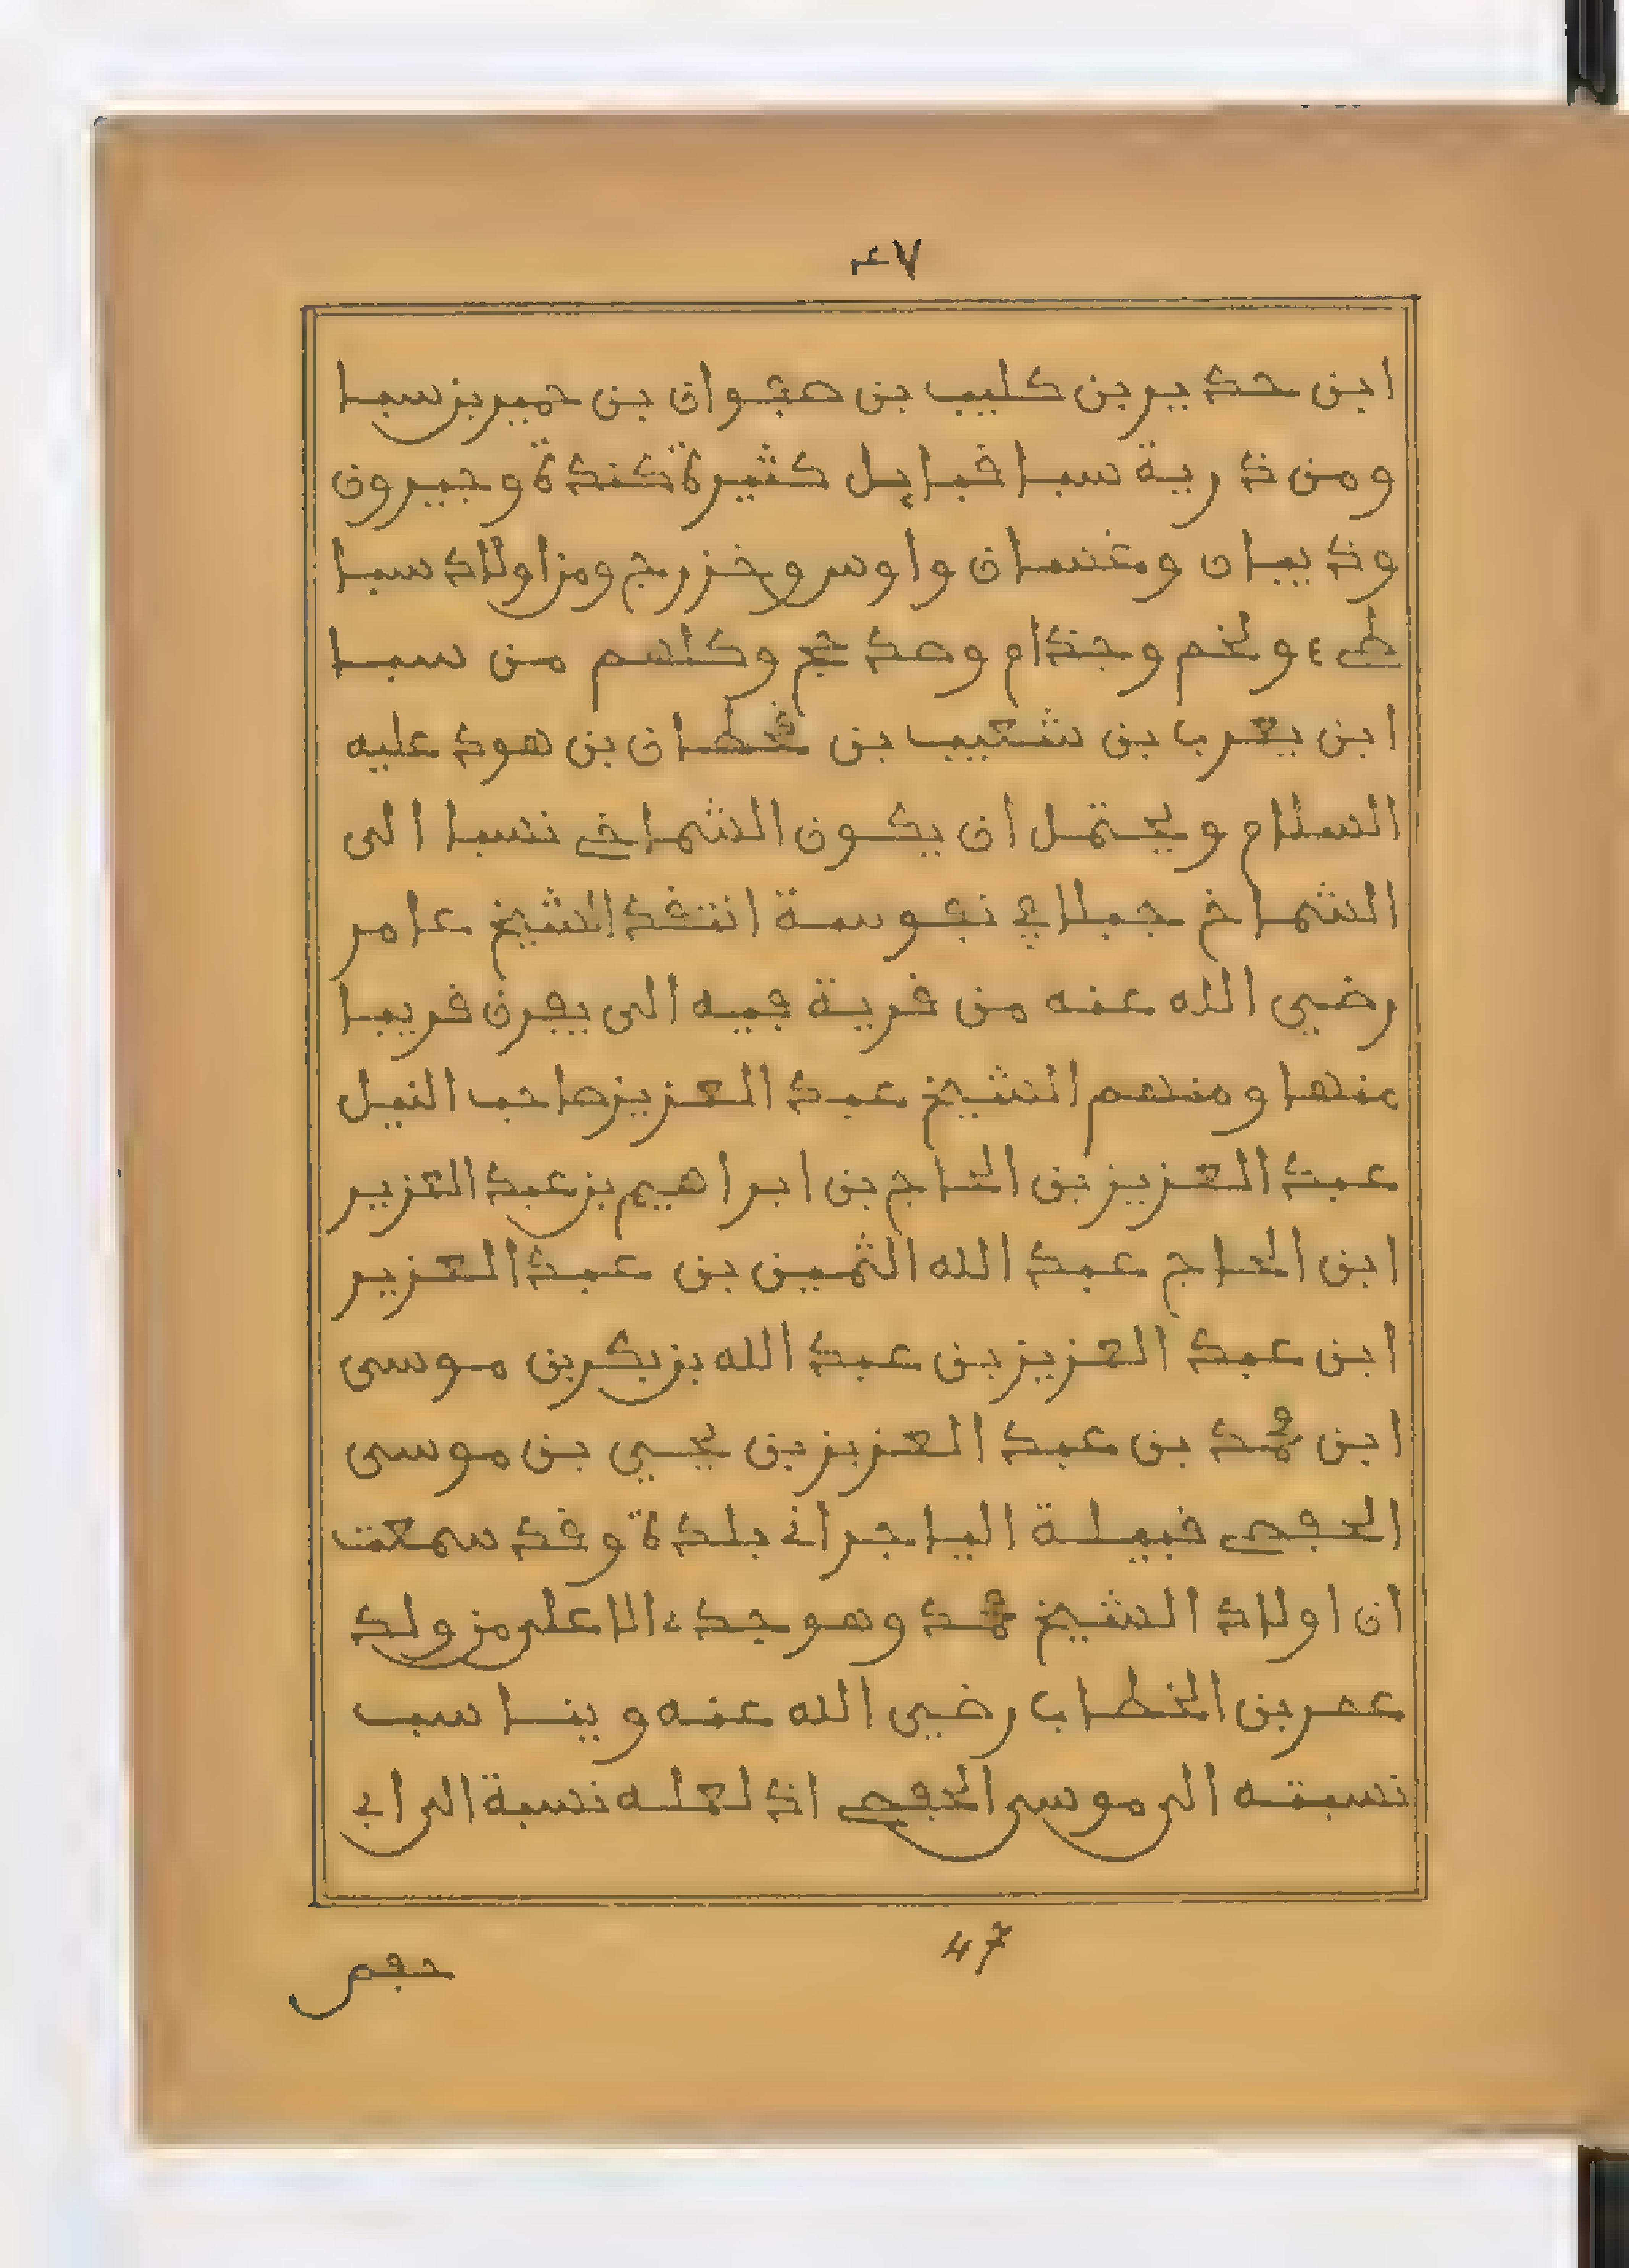 ٤٧
ابن حدير بن كليب بن صفوان بن حمير بن سبا
ومن ذرية سبا قبايل كثيرة كندة وجيرون
وذبيان وغسان واوس وخزرج ومن اولاد سبا
طيء ولخم وجذام ومدحج وكلهم من سبا
ابن يعرب بن شعيب بن قحطان بن هود عليه
السلام ويحتمل ان يكون الشماخي نسبا الى
الشماخ جبلا في نفوسة انتقد الشيخ عامر
رضي الله عنه من قرية فيه الى يفرن قريبا
منها ومنهم الشيخ عبد العزيز صاحب النيل
عبد العزيز بن الحاج بن ابراهيم بن عبد العزيز
ابن الحاج عبد الله الثمين بن عبد العزيز
ابن عبد العزيز بن عبد الله بن بكر بن موسى
ابن محمد بن عبد العزيز بن يحيي بن موسى
الحفصي قبيلة اليا جراني بلدة وقد سمعت
ان اولاد الشيخ محمد وهو جده الاعلى من ولد
عمر بن الخطاب رضي الله عنه ويناسب
نسبته الى موسى الحفصي اذ لعله نسبة الى ابي
47
حفص